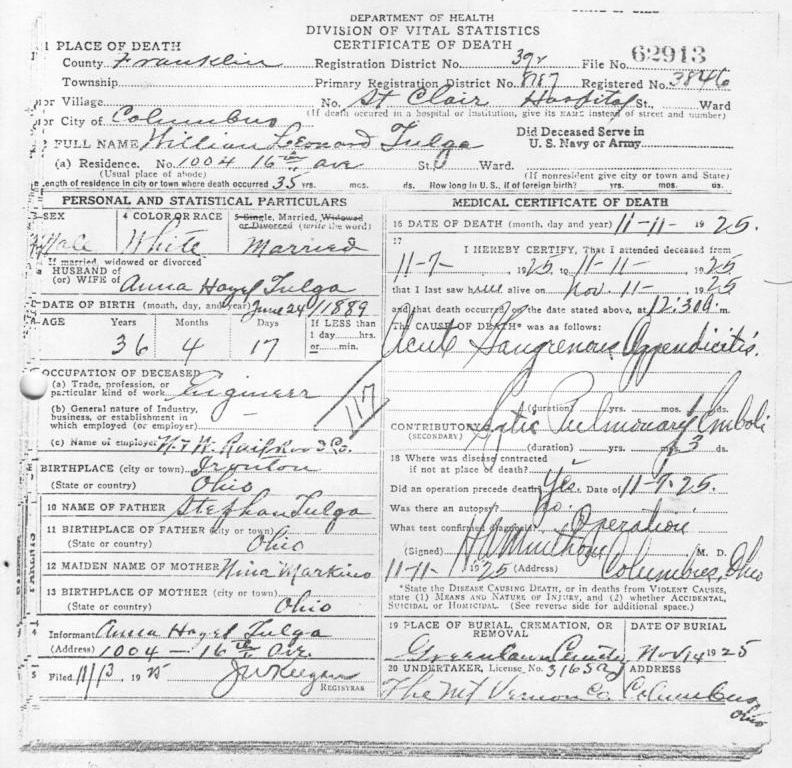 DEPARTMENT OF HEALTH
DIVISION OF VITAL STATISTICS
CERTIFICATE OF DEATH
1 PLACE OF DEATH
County Franklin Registration District No. 392 File No. 62913
Township Primary Registration District No. 8187 Registered No. 3846
or Village No. St Clair Hospital St., Ward
(If death occured in a hospital or institution, give its NAME instead of street and number)
or City of Columbus
FULL NAME William Leonard Fulga Did Deceased Serve in U. S. Navy or Army
(a) Residence. No. 1004 16th ave St., Ward.
(Usual place of abode) (If nonresident give city or town and State)
Length of residence in city or town where death occurred 35 yrs. mos. ds. How long in U. S., if of foreign birth? yrs. mos. ds.
PERSONAL AND STATISTICAL PARTICULARS
SEX 4 COLOR OR RACE 5 Single, Married, Widowed or Divorced (write the word)
Male White Married
If married, widowed or divorced
HUSBAND of
(or) WIFE of Anna Hazel Fulga
DATE OF BIRTH (month, day, and year) June 24 / 1889
AGE Years Months Days If LESS than 1 day hrs. or min.
36 4 17
OCCUPATION OF DECEASED
(a) Trade, profession, or particular kind of work Engineer
(b) General nature of Industry, business, or establishment in which employed (or employer)
(c) Name of employer N. & W. Railroad Co.
117
BIRTHPLACE (city or town) Ironton
(State or country) Ohio
10 NAME OF FATHER Stephan Fulga
11 BIRTHPLACE OF FATHER (city or town)
(State or country) Ohio
12 MAIDEN NAME OF MOTHER Nina Markins
13 BIRTHPLACE OF MOTHER (city or town)
(State or country) Ohio
PARENTS
Informant Anna Hazel Fulga
(Address) 1004 - 16th Ave.
Filed 11/13 1925 J W Keegan
REGISTRAR
MEDICAL CERTIFICATE OF DEATH
16 DATE OF DEATH (month, day and year) 11-11- 1925.
17 I HEREBY CERTIFY, That I attended deceased from
11-7-, 1925, to 11-11-, 1925
that I last saw him alive on Nov. 11-, 1925
and that death occurred, on the date stated above, at 12:30 a m.
The CAUSE OF DEATH* was as follows:
Acute Gangrenous Appendicitis.
(duration) yrs. mos. ds.
CONTRIBUTORY Septic Pulmonary Emboli
(SECONDARY) (duration) yrs. mos. 3 ds.
18 Where was disease contracted
if not at place of death?
Did an operation precede death? Yes. Date of 11-7-25.
Was there an autopsy? no.
What test confirmed diagnosis? Operation
(Signed) M. D.
11-11- 1925 (Address) Columbus, Ohio
*State the DISEASE CAUSING DEATH, or in deaths from VIOLENT CAUSES, state (1) MEANS AND NATURE OF INJURY, and (2) whether ACCIDENTAL, SUICIDAL or HOMICIDAL. (See reverse side for additional space.)
19 PLACE OF BURIAL, CREMATION, OR REMOVAL DATE OF BURIAL
Greenlawn Nov 14 1925
20 UNDERTAKER, License No. 3165 ADDRESS
The Mt Vernon Co. Columbus Ohio